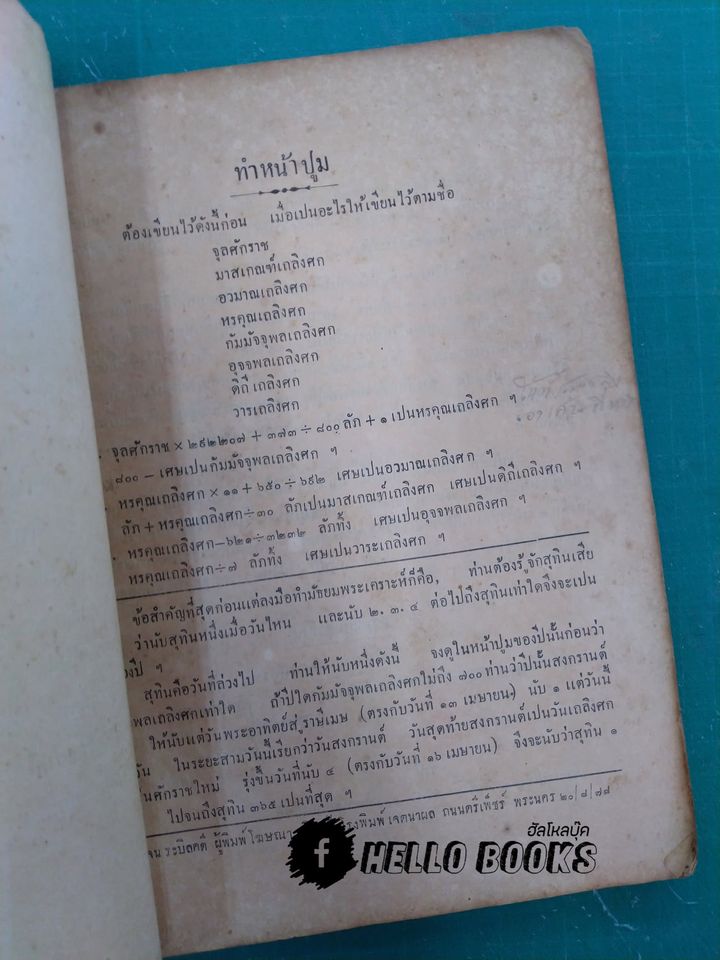 ทำหน้าปูม
ต้องเขียนไว้ดังนี้ก่อน เมื่อเปนอะไรให้เขียนไว้ตามชื่อ
จุลศักราช
มาสเกณฑ์เถลิงศก
อวมาณเถลิงศก
หรคุณเถลิงศก
กัมมัจจุพลเถลิงศก
อุจจพลเถลิงศก
ดิถีเถลิงศก
วารเถลิงศก
จุลศักราช × ๒๙๒๒๐๗ + ๓๗๓ ÷ ๘๐๐ ลัภ + ๑ เปนหรคุณเถลิงศก ฯ
๘๐๐ – เศษเปนกัมมัจจุพลเถลิงศก ฯ
หรคุณเถลิงศก × ๑๑ + ๖๕๐ ÷ ๖๙๒ เศษเปนอวมาณเถลิงศก ฯ
ลัภ + หรคุณเถลิงศก ÷ ๓๐ ลัภเปนมาสเกณฑ์เถลิงศก เศษเปนดิถีเถลิงศก ฯ
หรคุณเถลิงศก – ๖๒๑ ÷ ๓๒๓๒ ลัภทิ้ง เศษเปนอุจจพลเถลิงศก ฯ
หรคุณเถลิงศก ÷ ๗ ลัภทิ้ง เศษเปนวาระเถลิงศก ฯ
ข้อสำคัญที่สุดก่อนแต่ลงมือทำมัธยมพระเคราะห์ก็คือ, ท่านต้องรู้จักสุทินเสีย
ว่านับสุทินหนึ่งเมื่อวันไหน และนับ ๒. ๓. ๔ ต่อไปถึงสุทินเท่าใดจึงจะเปน
ปี ฯ
สุทินคือวันที่ล่วงไป ท่านให้นับหนึ่งดังนี้ จงดูในหน้าปูมของปีนั้นก่อนว่า
พลเถลิงศกเท่าใด ถ้าปีใดกัมมัจจุพลเถลิงศกไม่ถึง ๗๐๐ ท่านว่าปีนั้นสงกรานต์
ให้นับแต่วันพระอาทิตย์สู่ราษีเมษ (ตรงกับวันที่ ๑๓ เมษายน) นับ ๑ แต่วันนี้
วัน ในระยะสามวันนี้เรียกว่าวันสงกรานต์ วันสุดท้ายสงกรานต์เปนวันเถลิงศก
นศักราชใหม่ รุ่งขึ้นวันที่นับ ๔ (ตรงกับวันที่ ๑๖ เมษายน) จึงจะนับว่าสุทิน ๑
ไปจนถึงสุทิน ๓๖๕ เปนที่สุด ฯ
ระบิลคดี ผู้พิมพ์โฆษณา พิมพ์ เจตนาผล ถนนตรีเพ็ชร์ พระนคร ๒๐/๘/๘๘
ฮัลโหลบุ๊ค
f HELLO BOOKS